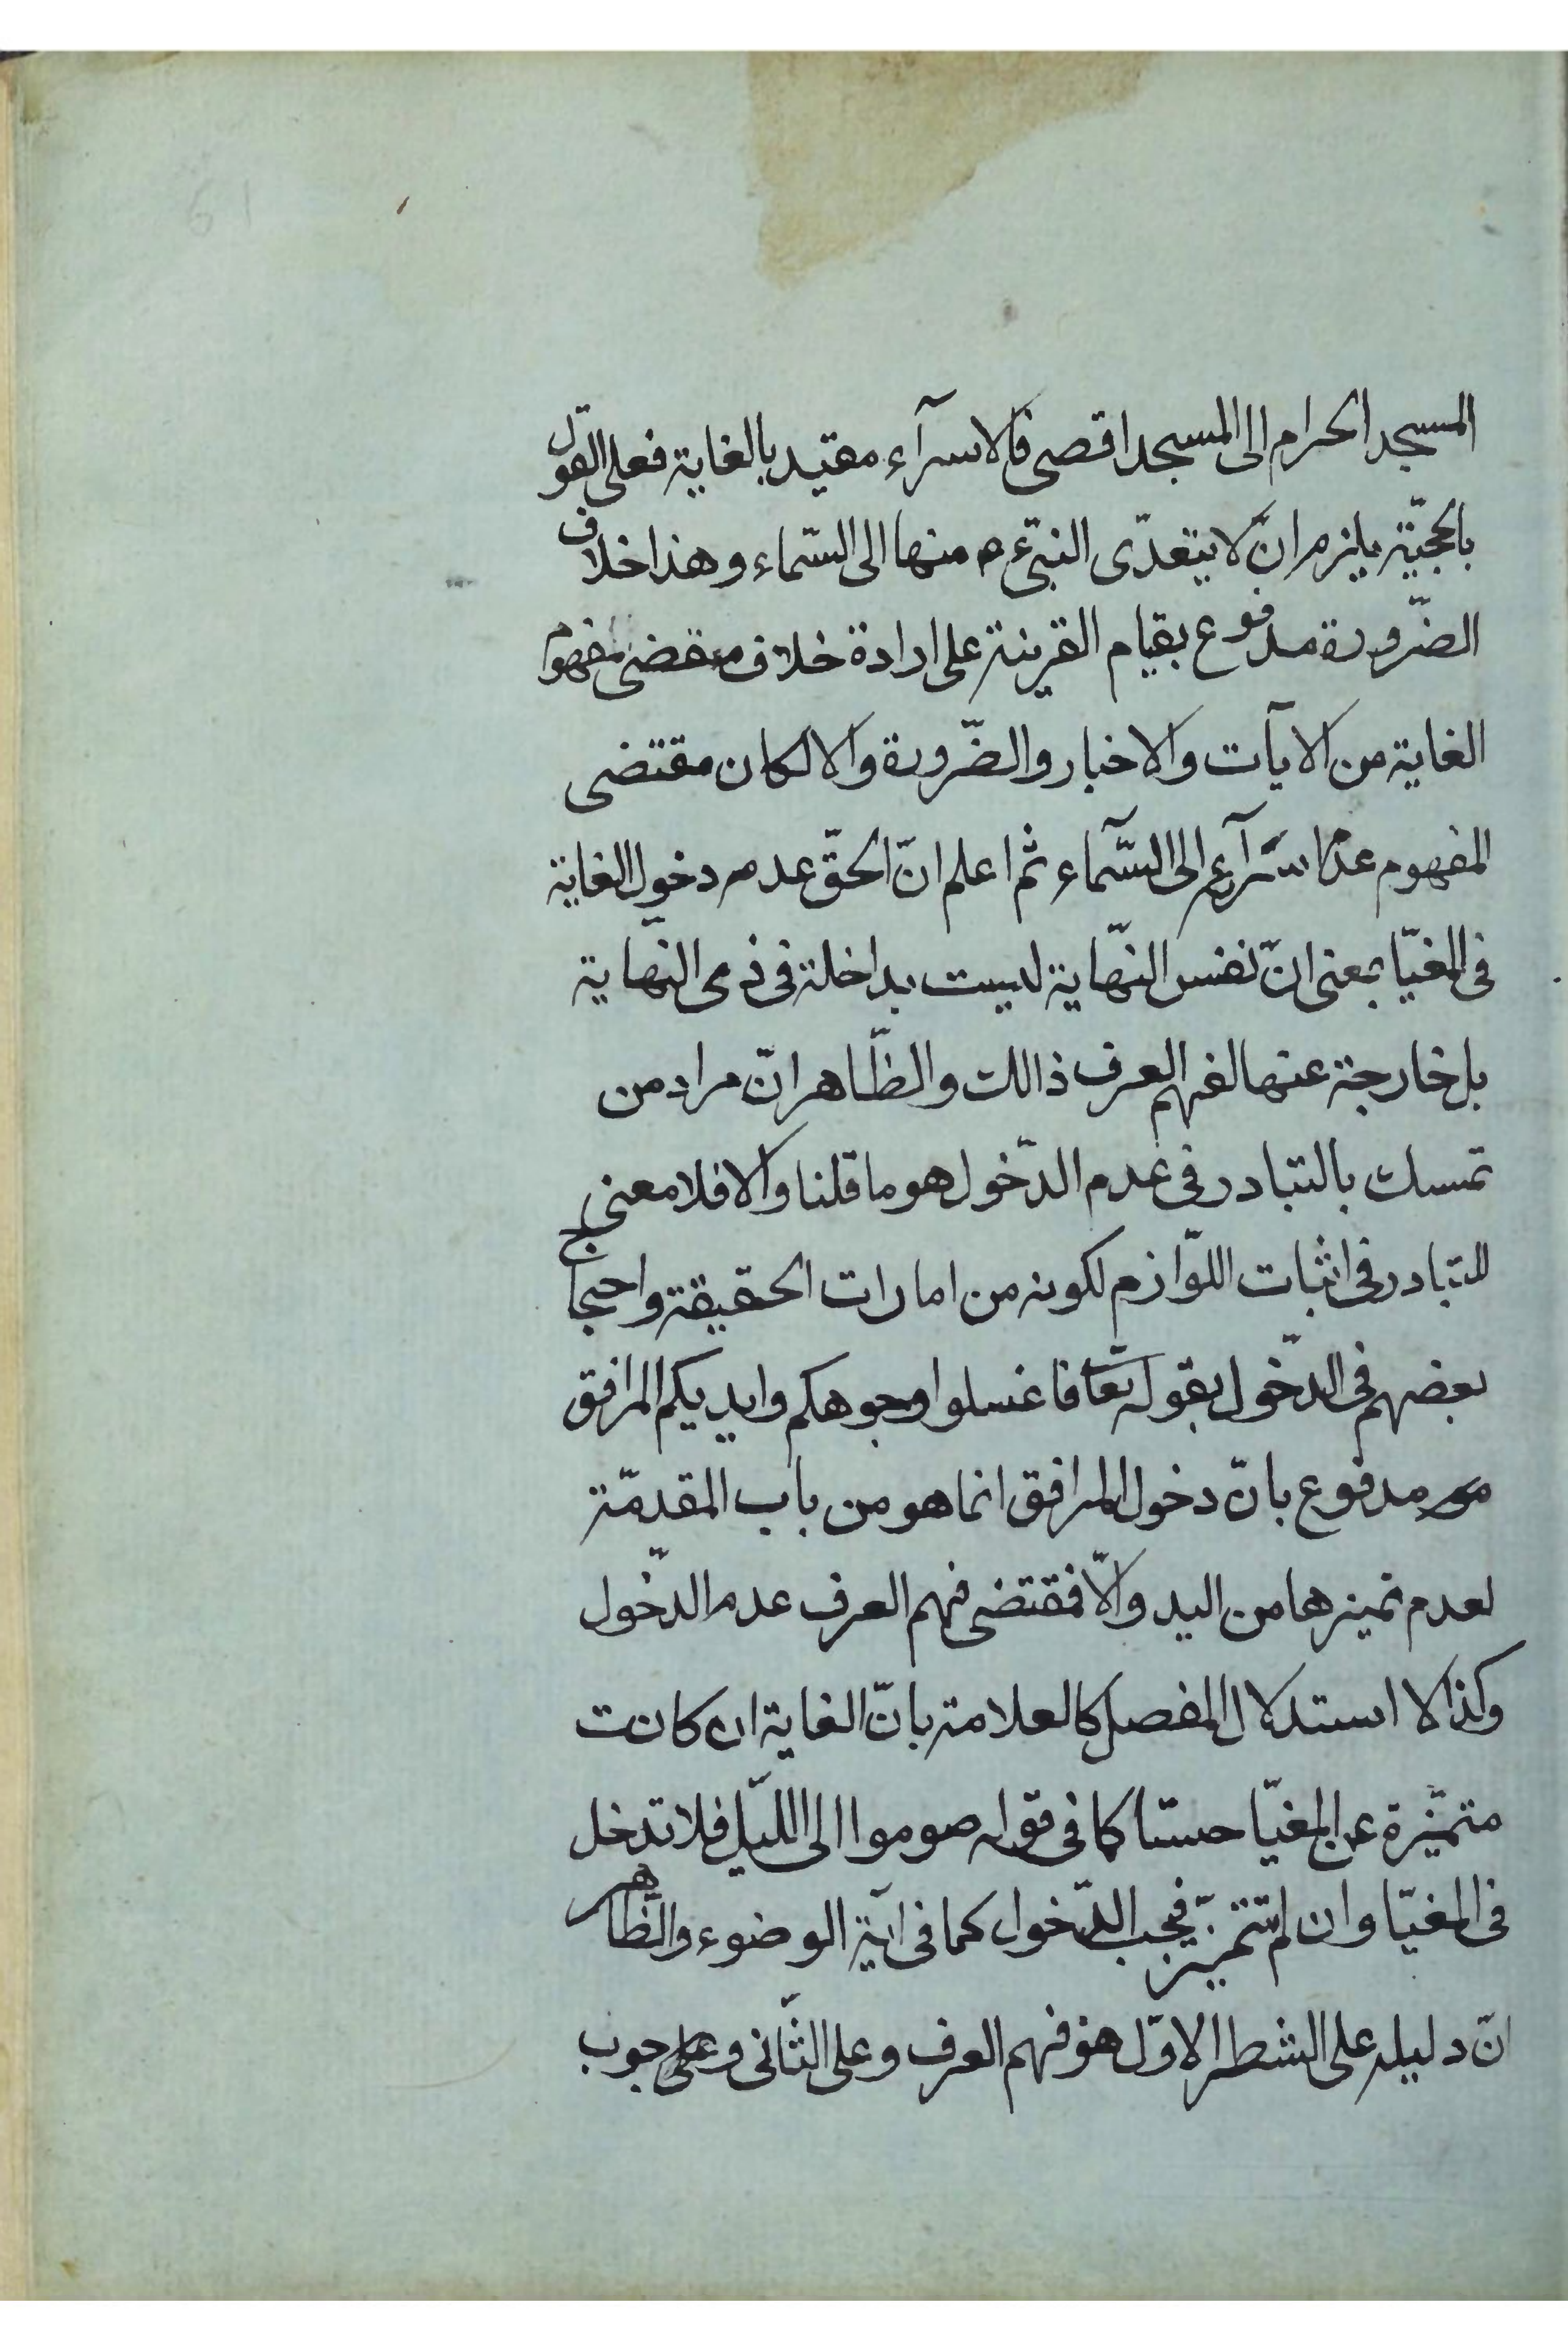 المسجد الحرام الى المسجد اقصى فالاسرآء مقيد بالغاية فعلى القول
بالحجيّة يلزم انّ لا يتعدّى النبىّ ع م منها الى السّماء وهذا خلاف
الضّرورة مدفوع بقيام القرينة على ارادة خلاف مقتضى مفهوم
الغاية من الايآت والاخبار والضّرورة والا لكان مقتضى
المفهوم عدم اسرآءع الى السّمآء ثم اعلم انّ الحقّ عدم دخول الغاية
فى المغيّا بمعنى انّ نفس النّهاية ليست بداخلة فى ذى النّهاية
بل خارجة عنها لفهم العرف ذالك والظّاهر انّ مراد من
تمسك بالتبادر فى عدم الدّخول هو ما قلنا والا فلا معنى
للتبادر فى اثبات اللّوازم لكونه من امارات الحقيقة واحتجاج
بعضهم فى الدّخول بقوله تعا فاغسلوا وجوهكم وايديكم المرافق
مدفوع بانّ دخول المرافق انما هو من باب المقدمّة
لعدم تميزها من اليد والّا فمقتضى فهم العرف عدم الدّخول
وكذا لا استدلال المفصل كالعلامة بانّ الغاية ان كانت
متميّزة عن المغيّا حسّا كما فى قوله صوموا الى اللّيل فلا تدخل
فى المغيّا وان لم تتميّز فيجب الدّخول كما فى آية الوضوء والظّاهر
انّ دليله على الشطر الاوّل هو فهم العرف وعلى الثّانى وجوب